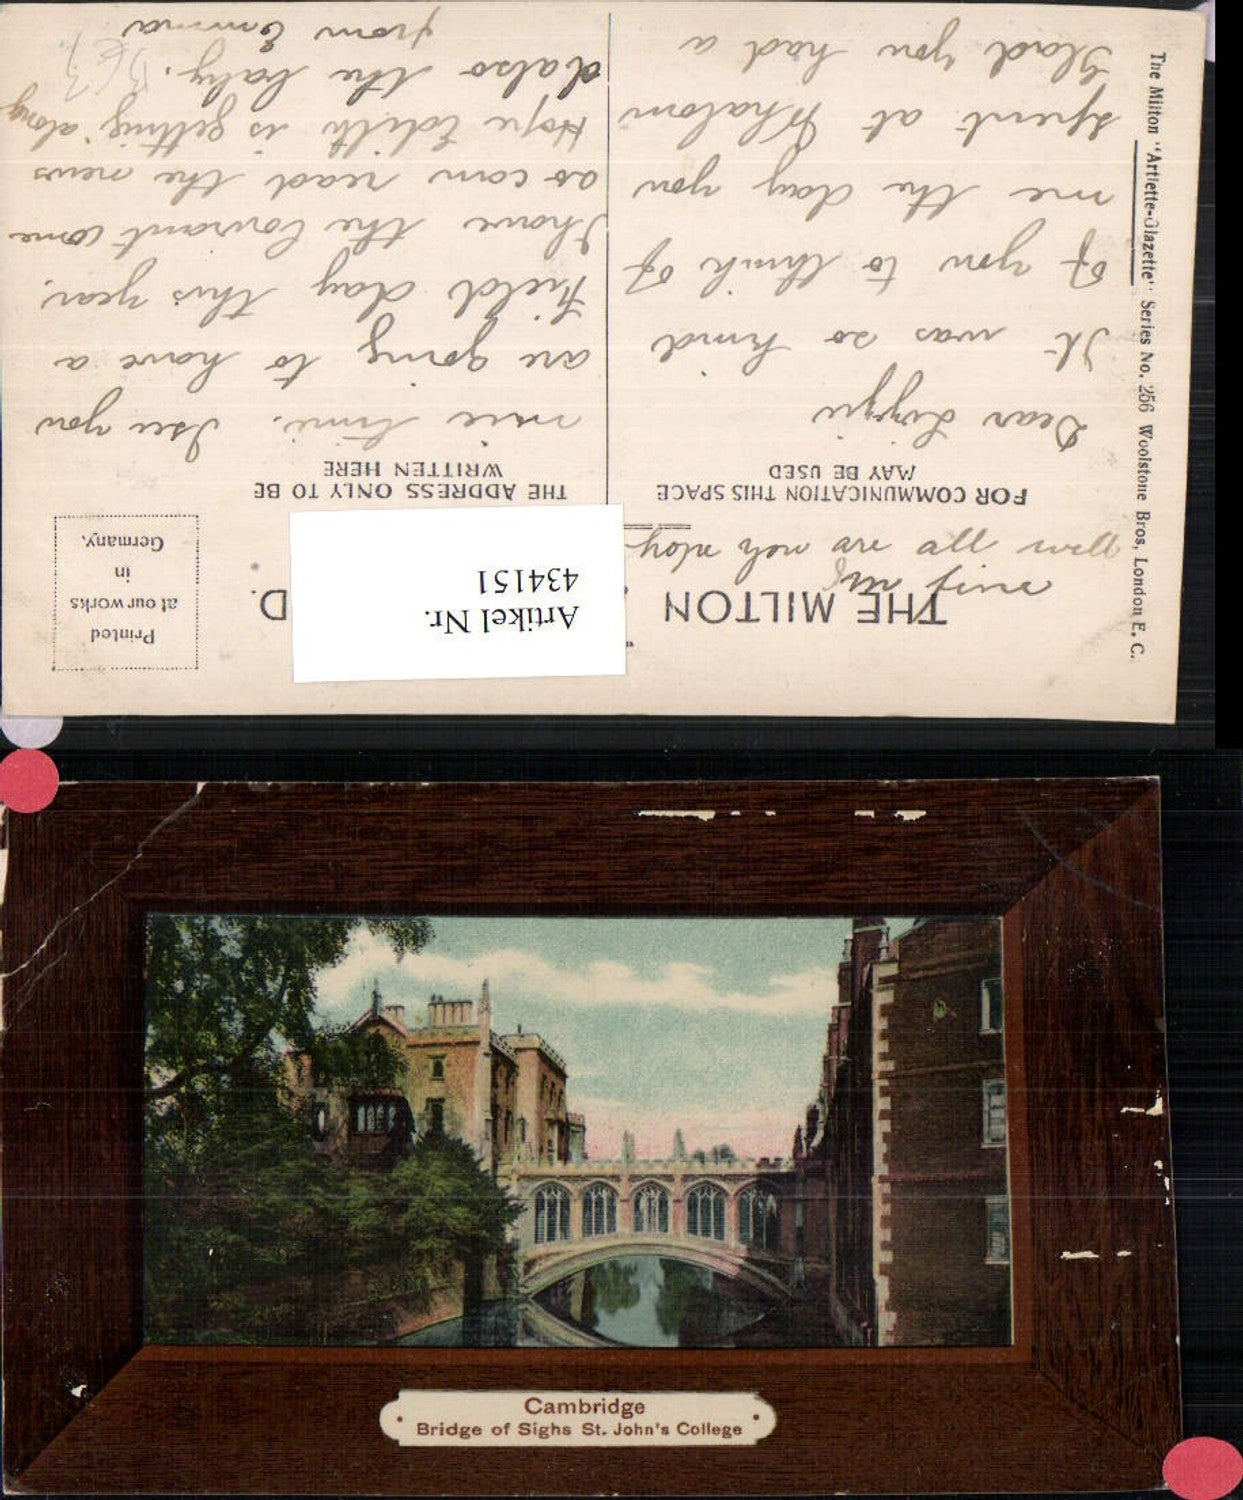 THE MILTON
D.
Artikel Nr.
434151
Printed
at our works
in
Germany.
FOR COMMUNICATION THIS SPACE
MAY BE USED
THE ADDRESS ONLY TO BE
WRITTEN HERE
well all are well
Dear Lizzie
It was so kind
of you to think of
me the day you
spent at Whalom
Glad you had a
nice time. I see you
are going to have a
Field day this year.
I have the Courant come
so can read the news
Hope Edith is getting along
& also the baby.
from Emma
The Milton "Artlette-Glazette" Series No. 256 Woolstone Bros, London E. C.
Cambridge
Bridge of Sighs St. John's College